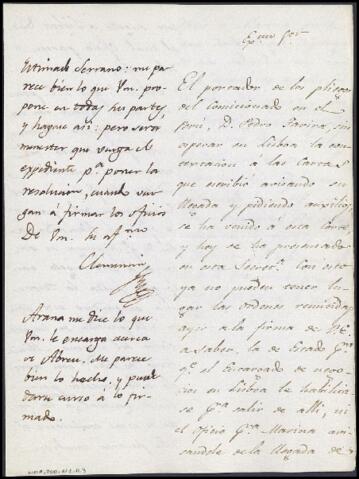 Exmo Sor
Estimado Serrano: me pa-
rece bien lo que Vm. pro-
pone en todas sus partes,
y hagase asi: pero será
menester que venga el
expediente pa. poner la
resolucion, cuando ven-
gan á firmar los oficios
De Vm. su afmo
Clemencin
Arana me dice lo que
Vm. le encarga acerca
de Abreu. Me parece
bien lo hecho, y puede
darse curso a lo fir-
mado.
El portador de los pliegos
del Comisionado en el
Perú, D. Pedro sin
esperar en Lisboa la con-
textacion á las Cartas
que escribió avisando su
llegada y pidiendo auxilios,
se ha venido a esta Corte
y hoy se ha presentado
en esta Secreta. Con esto
ya no pueden tener lu-
gar las ordenes remitidas
ayer a la firma de VE.
a saber, la de Estado pa.
qe. el Encargado de nego-
cios en Lisboa le habilita-
se pa. salir de alli, ni
el oficio pa. Marina avi-
sandole de la llegada de